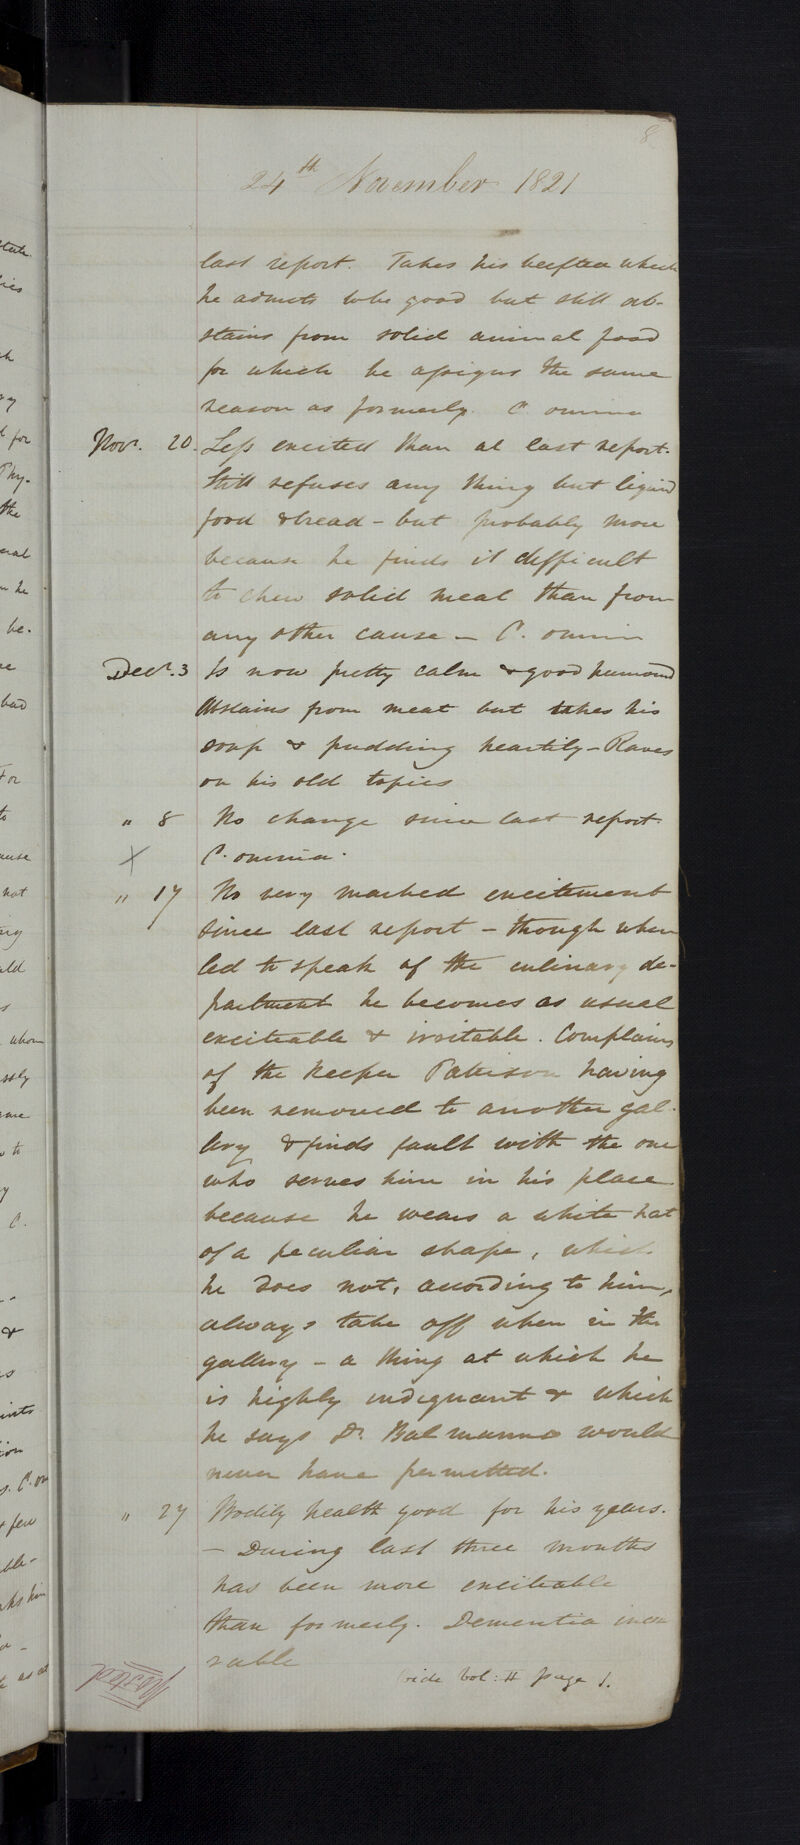 8
24th November 1821
last report. Takes his beeftea which
he admits tobe good but still ab-
stains from solid animal food
for which he assigns the same
reason as formerly. C. omnia
Novr. 20. Less excited than at last report.
Still refuses any thing but liquid
food & bread - but probably more
because he finds it difficult
to chew solid meat than from
any other cause - C. omnia
Decr. 3 Is now pretty calm & good humoured
Abstains from meat but takes his
soup & pudding heartily - Raves
on his old topics
" 8 No change since last report.
X C. omnia.
" 17 No very marked excitement
since last report - though when
led to speak of the culinary de-
partment he becomes as usual
exciteable & irritable. Complains
of the keeper Patterson having
been removed to another gal-
lery & finds fault with the one
who serves him in his place
because he wears a white hat
of a peculiar shape, which
he does not, according to him,
always take off when in the
gallery - a thing at which he
is highly indignant & which
he says Dr. Balmanno would
never have permitted.
" 27 Bodily health good for his years.
- During last three months
has been more exciteable
than formerly. Dementia incu
rable
vide Vol: II page 1.
Posted